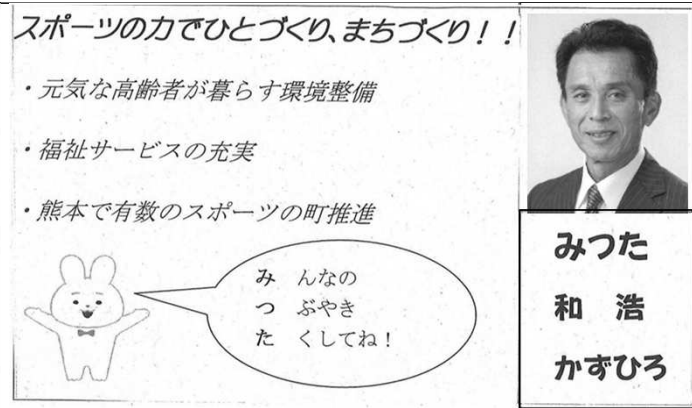 スポーツの力でひとづくり、まちづくり！！
・元気な高齢者が暮らす環境整備
・福祉サービスの充実
・熊本で有数のスポーツの町推進
み んなの
つ ぶやき
た くしてね！
みつた
和 浩
かずひろ